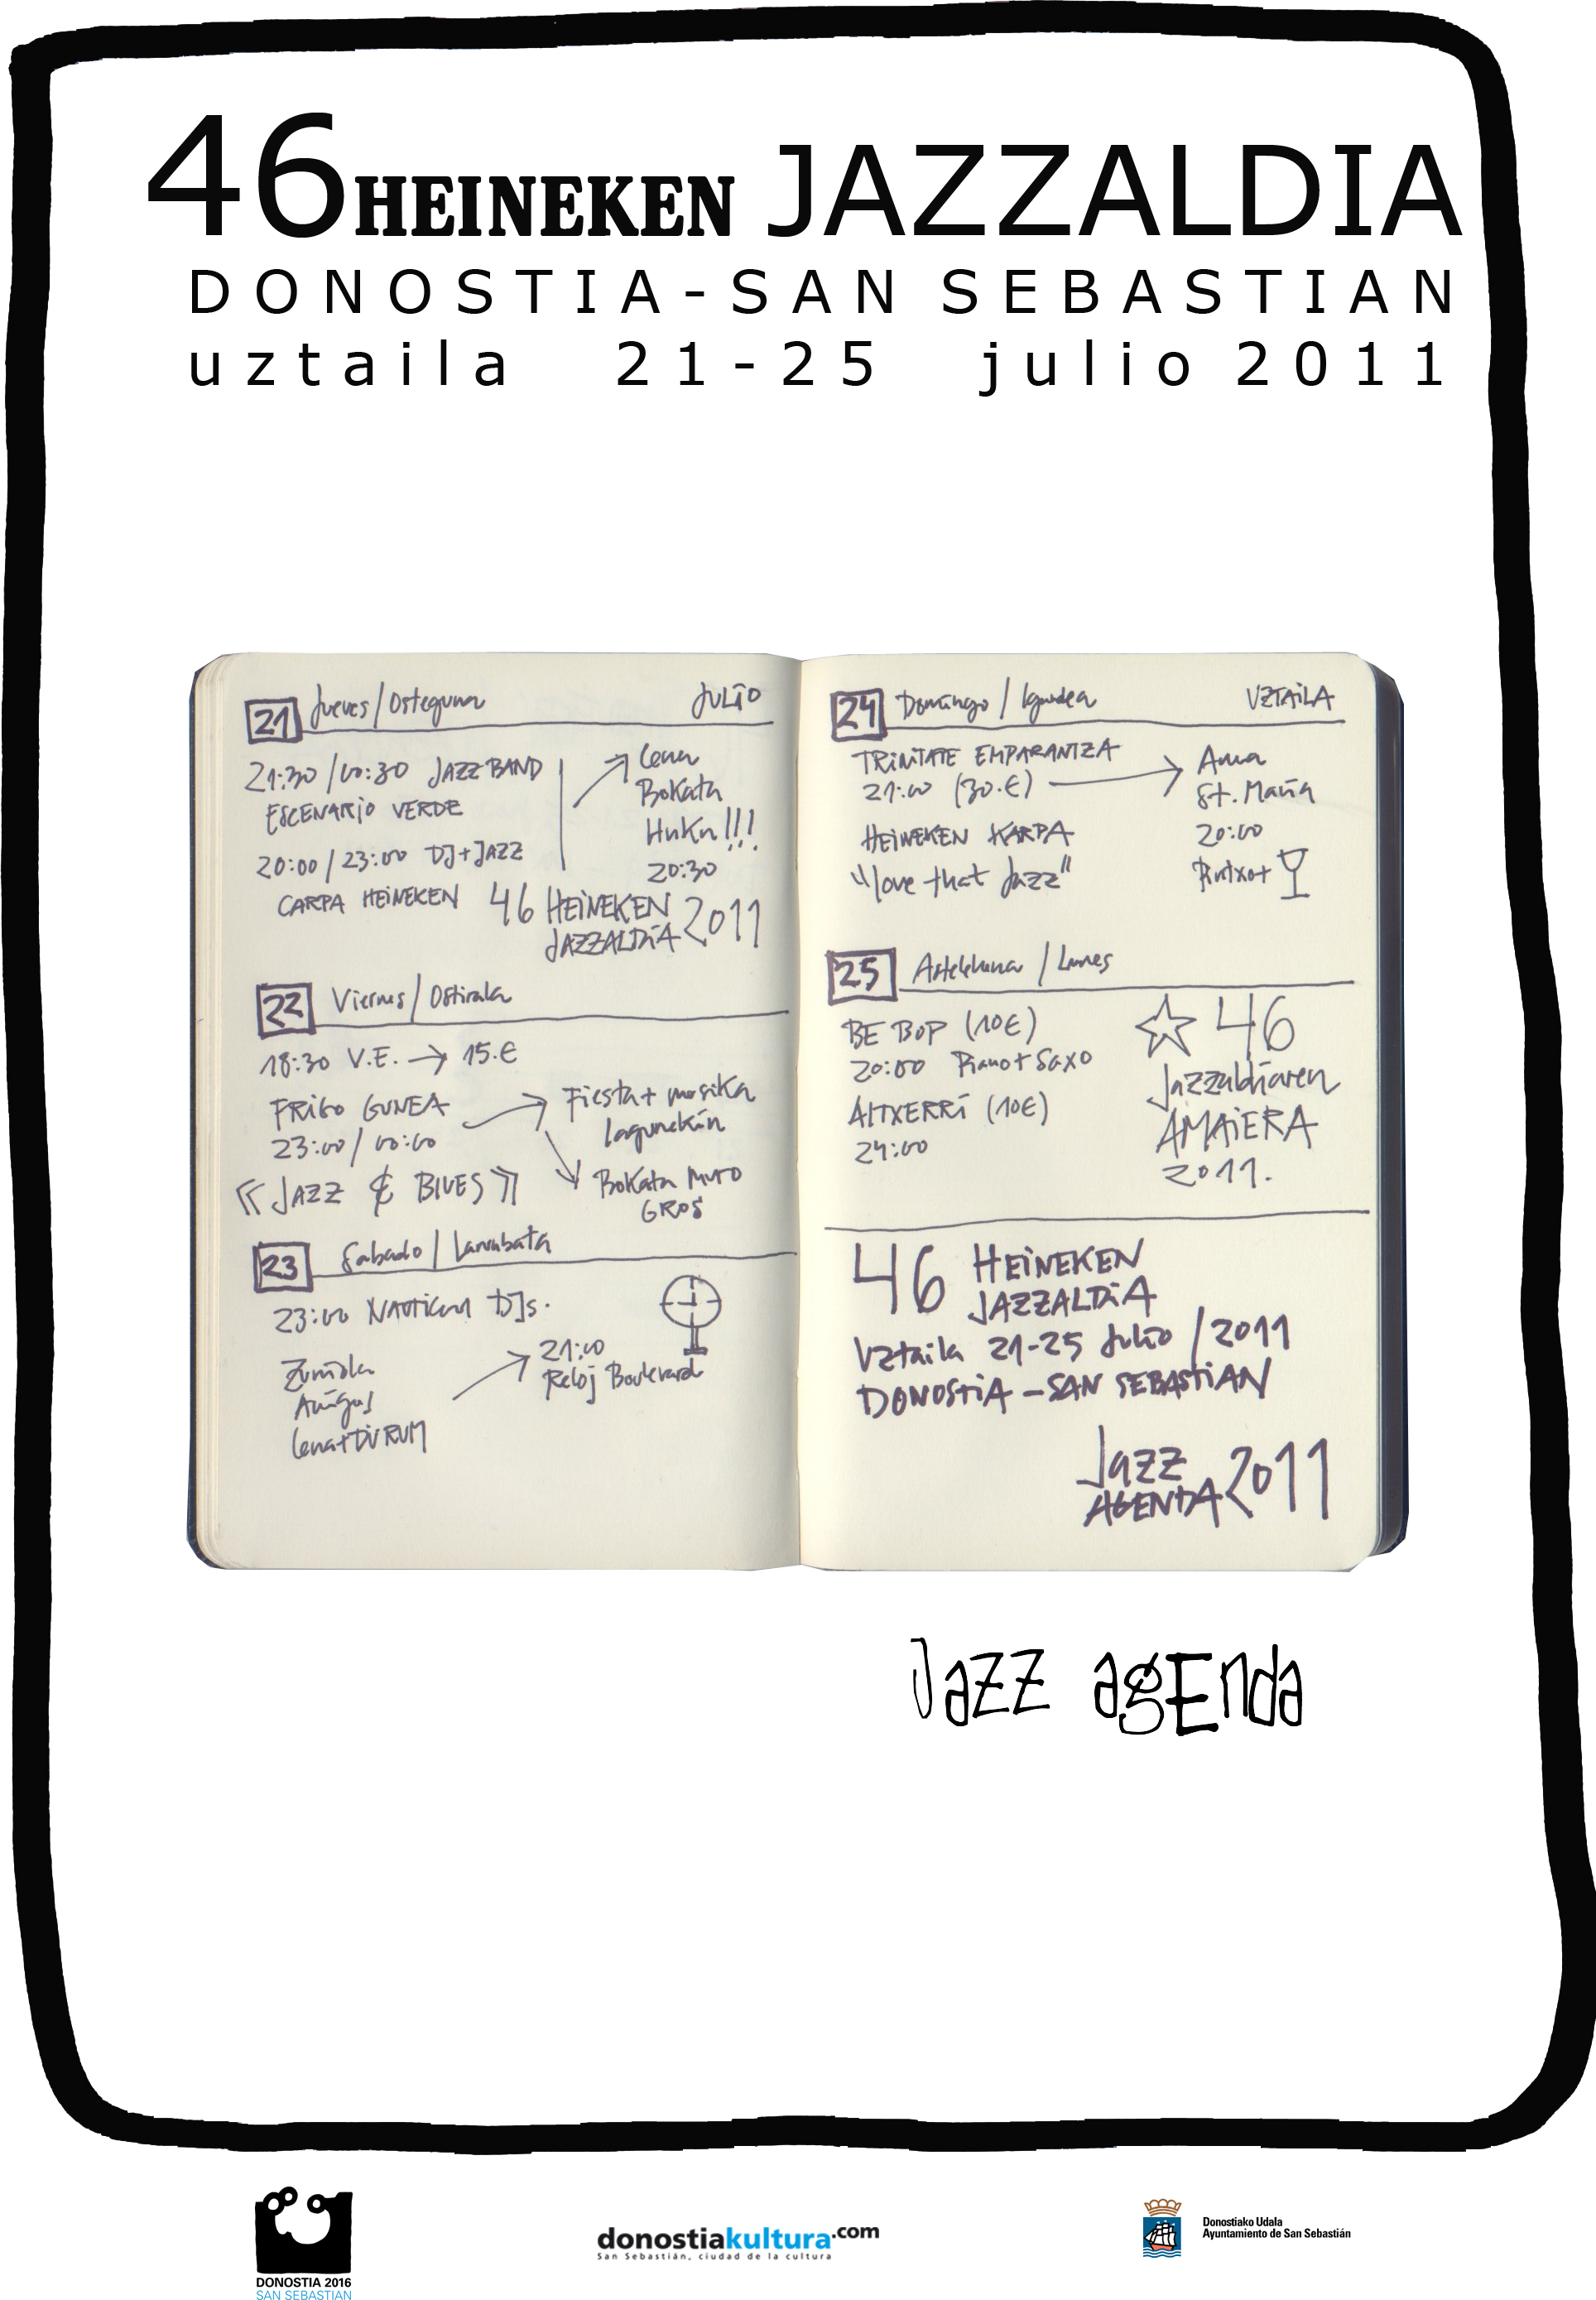 46 HEINEKEN JAZZALDIA
DONOSTIA-SAN SEBASTIAN
uztaila 21-25 julio 2011
21 Jueves/Osteguna JULIO
21:30/00:30 JAZZ BAND
ESCENARIO VERDE
20:00/23:00 DJ+JAZZ
CARPA HEINEKEN
Cena
Bokata
!!!
20:30
46 HEINEKEN
JAZZALDIA 2011
22 Viernes/Ostirala
18:30 V.E. → 15.€
FRIGO GUNEA
23:00/00:00
«JAZZ & BLUES»
Fiesta+musika
lagunekin
Bokata Muro
GROS
23 Sabado/Larunbata
23:00 NAUTICUM DJs.
Amigos
Cena+DURUM
21:00
Reloj Boulevard
24 Domingo/Igandea UZTAILA
TRINITATE EMPARANTZA
21:00 (30.€)
HEINEKEN KARPA
"love that Jazz"
Ama
St. Maria
20:00
Pintxo+
25 Astelehena/Lunes
BE BOP (10€)
20:00 Piano+Saxo
ALTXERRI (10€)
24:00
46
Jazzaldiaren
AMAIERA
2011.
46 HEINEKEN
JAZZALDIA
Uztaila 21-25 Julio/2011
DONOSTIA-SAN SEBASTIAN
Jazz
AGENDA 2011
Jazz agEnda
DONOSTIA 2016
SAN SEBASTIAN
donostiakultura.com
San Sebastián, ciudad de la cultura
Donostiako Udala
Ayuntamiento de San Sebastián